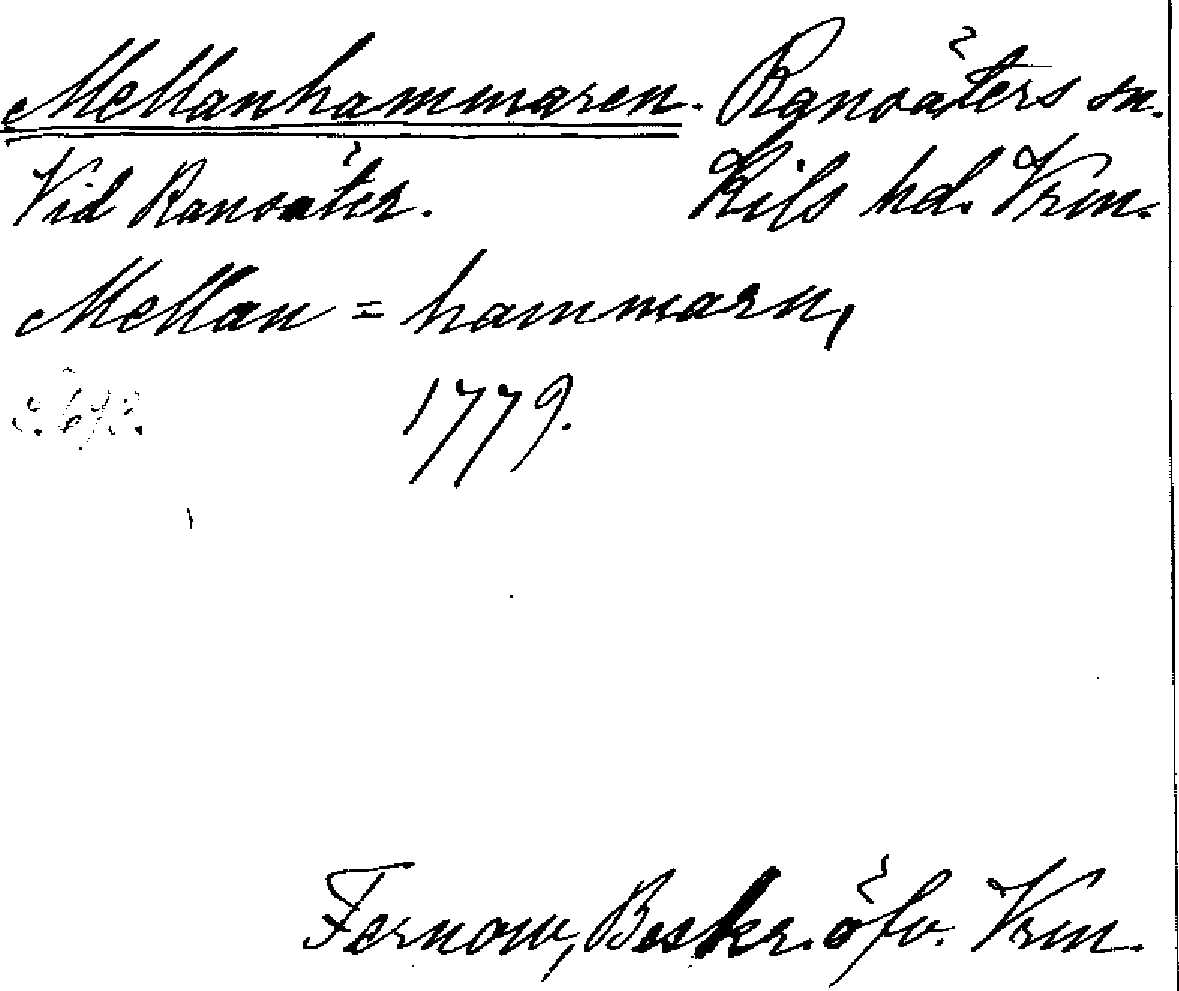 Mellanhammaren. Ransäters sn.
Vid Ransäter. Kils hd. Vrm.
Mellan=hammarn,
s. 692. 1779.
Fernow, Beskr. öfv. Vrm.